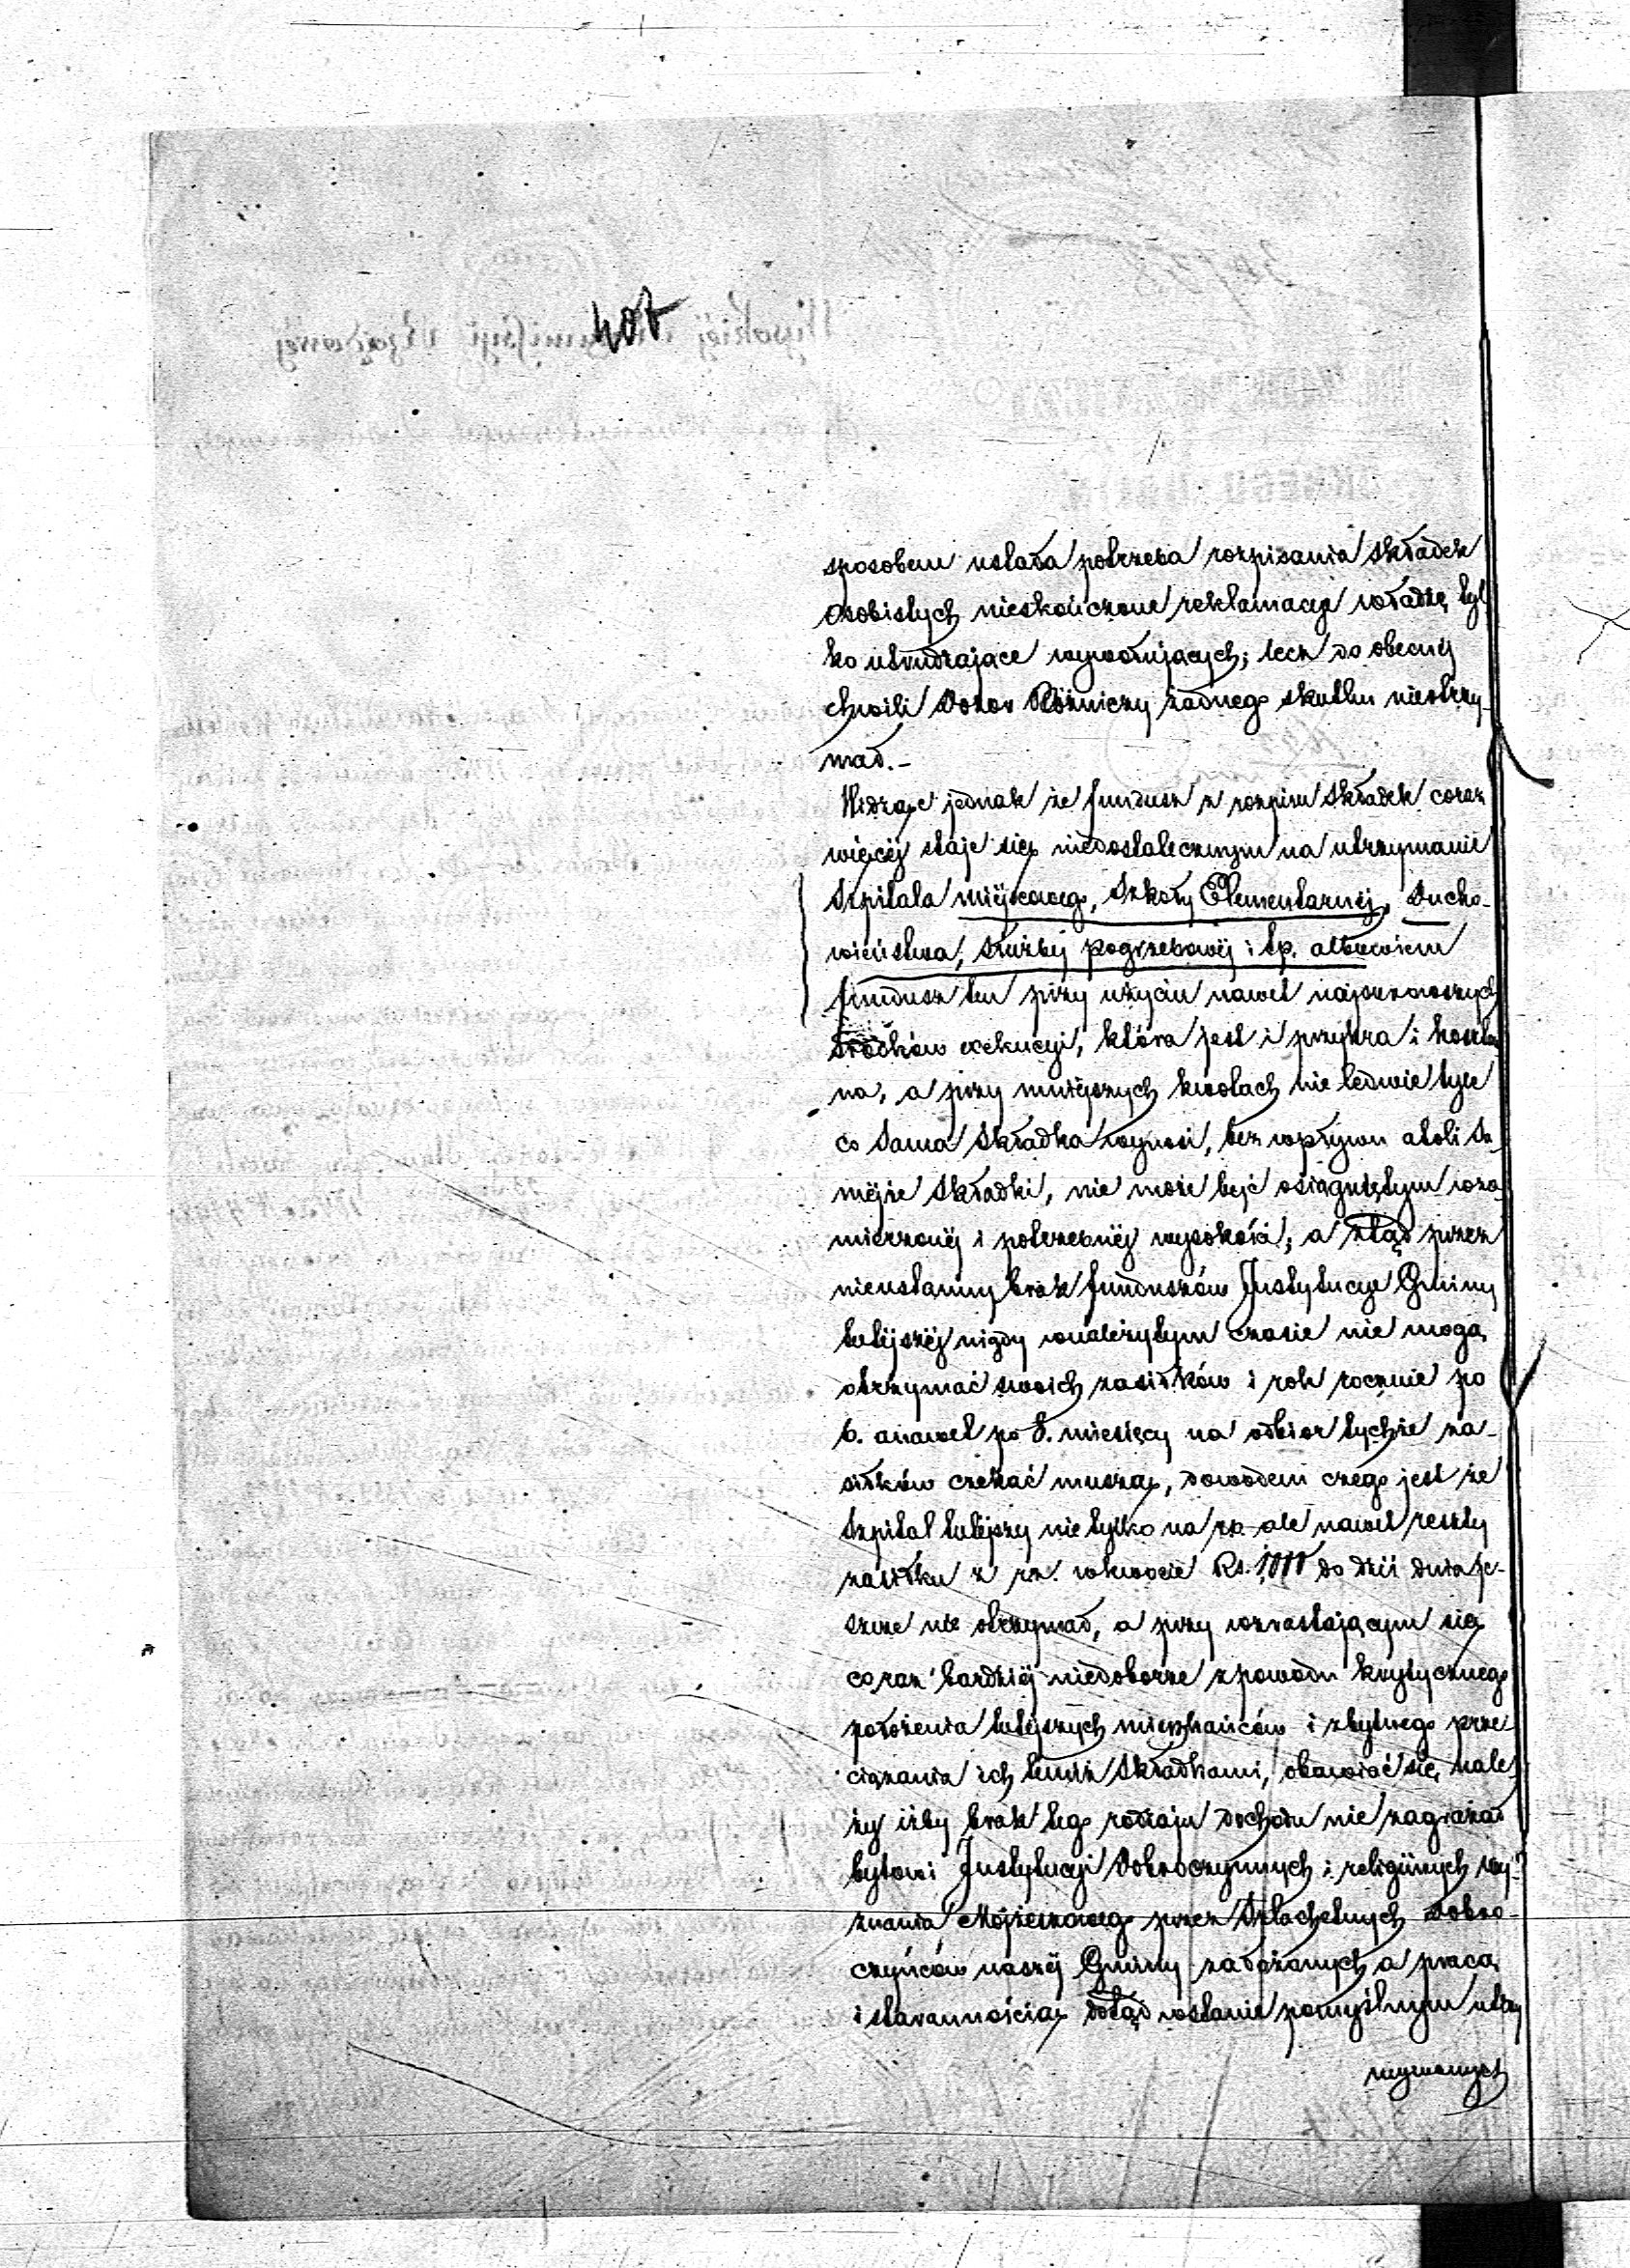 sposobem ustała potrzeba rozpisania składek
osobistych nieskończone reklamacye władzę tyl
ko utrudzające wywołujących; lecz do obecnéj
chwili Dozór Bóżniczy żadnego skutku nieotrzy-
mał.-
Widząc jednak że fundusz z rozpisu składek coraz
więcéj staje się niedostatecznym na utrzymanie
Szpitala miéjscowego, Szkoły Elementarnéj, Ducho-
wieństwa, służby pogrzebowéj i tp. albowiem
fundusz ten przy użyciu nawet najsurowszych
środków exekucyi, która jest i przykra i koszto
na, a przy mniéjszych kwotach nie ledwie tyle
co sama składka wynosi, bez wpływu atoli sa
méjże składki, nie może być osiągniętym wza
mierzonéj i potrzebnéj wysokości; a ztąd przez
nieustanny brak funduszów Instytucye Gminy
tutéjszéj nigdy wnależytym czasie nie mogą
otrzymać swoich zasiłków i rok rocznie po
6. anawet po 8. miesięcy na odbiór tychże za-
siłków czekać muszą, dowodem czego jest że
Szpital tutéjszy nie tylko na rb. ale nawet reszty
zasiłku z rz. wkwocie Rs. do dziś dnia je-
szcze nie otrzymał, a przy wzrastającym się
coraz bardziéj niedoborze zpowodu krytycznego
położenia tutéjszych mieszkańców i zbytnego prze
ciążania ich temiż składkami, obawiać się nale
ży iżby brak tego rodzaju dochodu nie zagrażał
bytowi Instytucyi Dobroczynnych i religijnych Wy-
znania Mojżeszowego przez Szlachetnych Dobro-
czyńców naszéj Gminy założonych a pracą
i starannością dotąd wstanie pomyślnym utrzy
mywanych